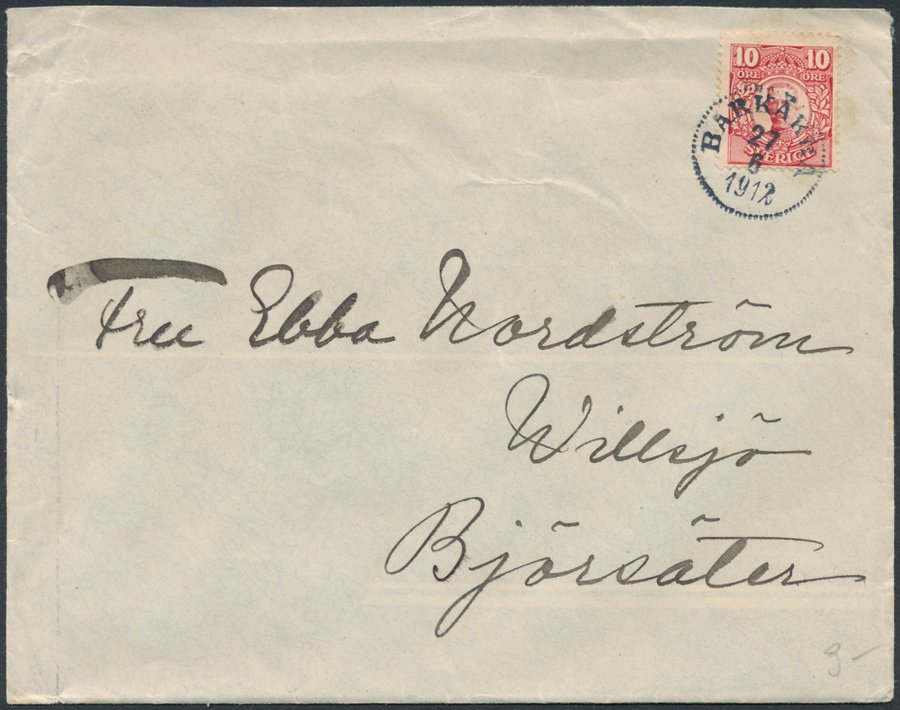 10 10
ÖRE ÖRE
SVERIGE
BARKARBY
27
6
1912
Fru Ebba Nordström
Willsjö
Björsäter
3-